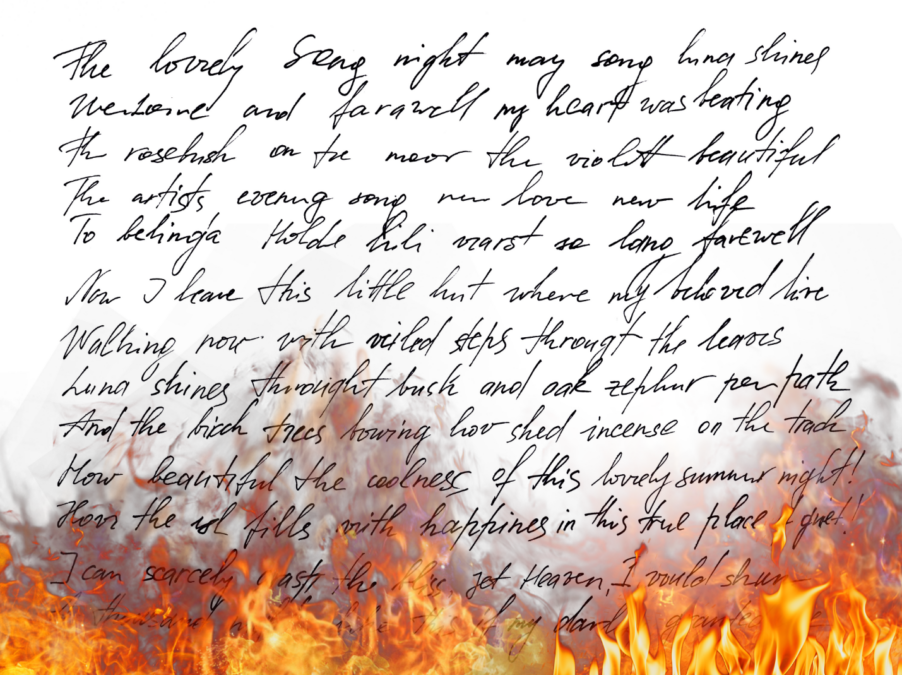 The lovely Song night may song luna shines
Welcome and farawell my heart was beating
Th rosebush on the moor the violett beautiful
The artists evening song new love new life
To belinda Holde Lili warst so long farewell
Now I leave this little hut where my beloved live
Walking now with veiled steps througt the leaves
Luna shines throught bush and oak zephur per path
And the birch trees bowing how shed incense on the track
How beautiful the coolness of this lovely summur night!
How the fills with happines in this true place quet!
I can scarcely the jet Heaven, I would shun
my